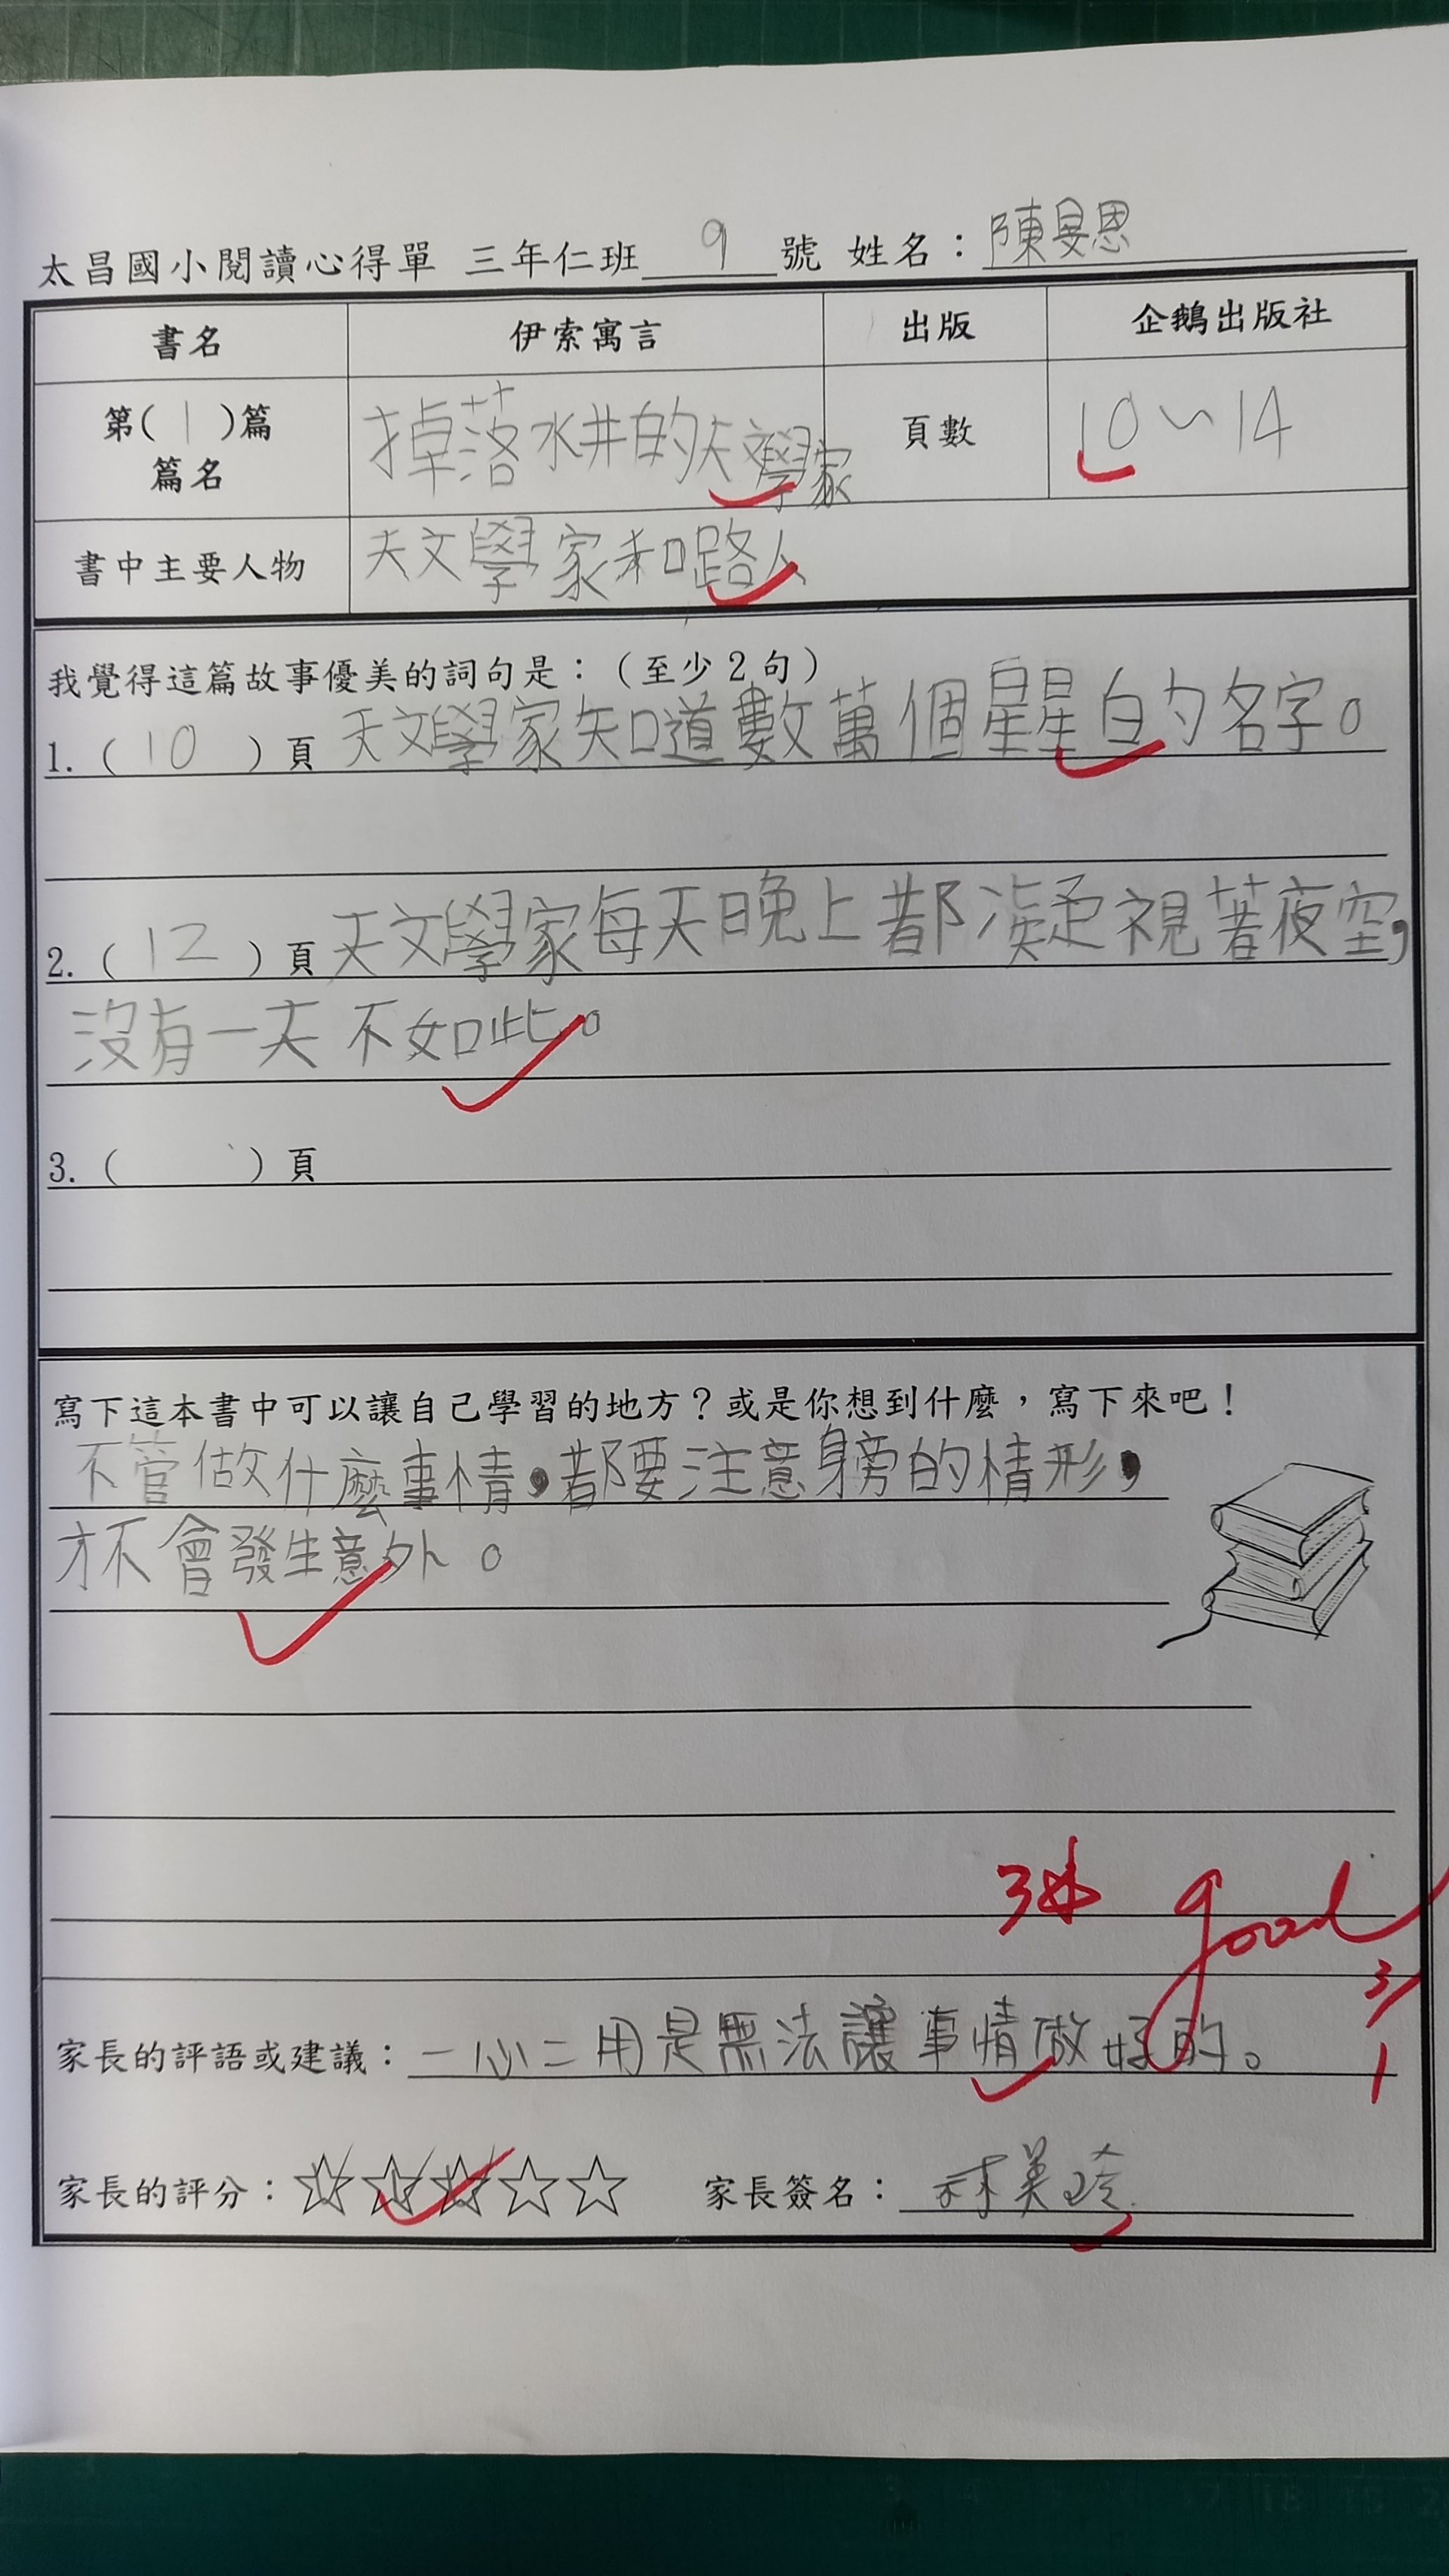 太昌國小閱讀心得單 三年仁班 9 號 姓名：陳旻恩
書名 伊索寓言 出版 企鵝出版社
第( 1 )篇
篇名 掉落水井的天文學家 頁數 10~14
書中主要人物 天文學家和路人
我覺得這篇故事優美的詞句是：（至少2句）
1.（ 10 ）頁 天文學家知道數萬個星星的名字。
2.（ 12 ）頁 天文學家每天晚上都凝視著夜空，
沒有一天不如此。
3.（ ）頁
寫下這本書中可以讓自己學習的地方？或是你想到什麼，寫下來吧！
不管做什麼事情，都要注意身旁的情形，
才不會發生意外。
3☆ good
3/1
家長的評語或建議：一心二用是無法讓事情做好的。
家長的評分：☆☆☆☆☆ 家長簽名：林美玲